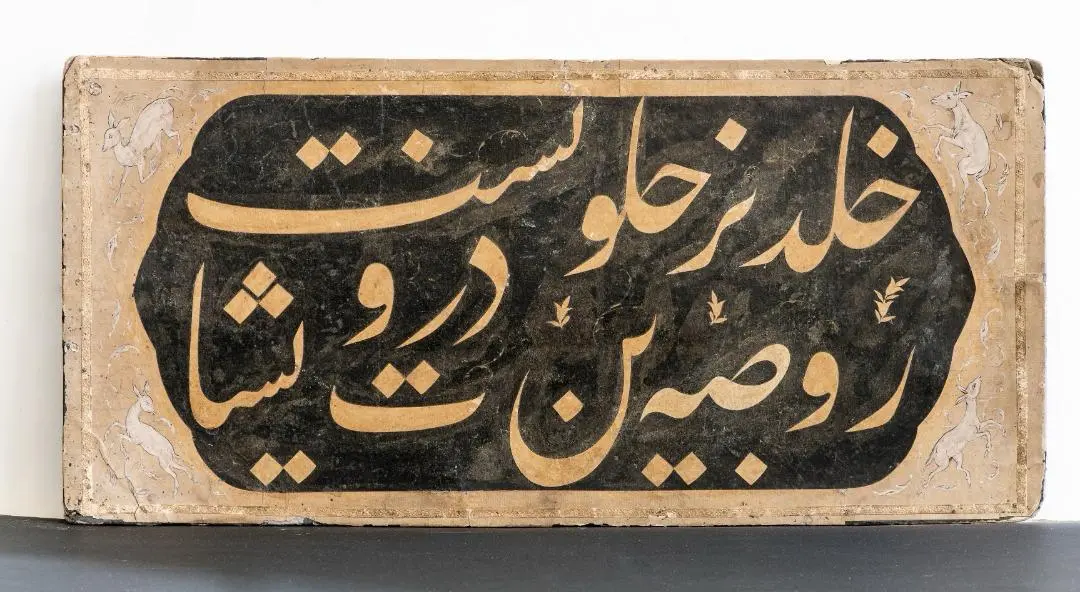 روضه خلد برین خلوت درویشانست